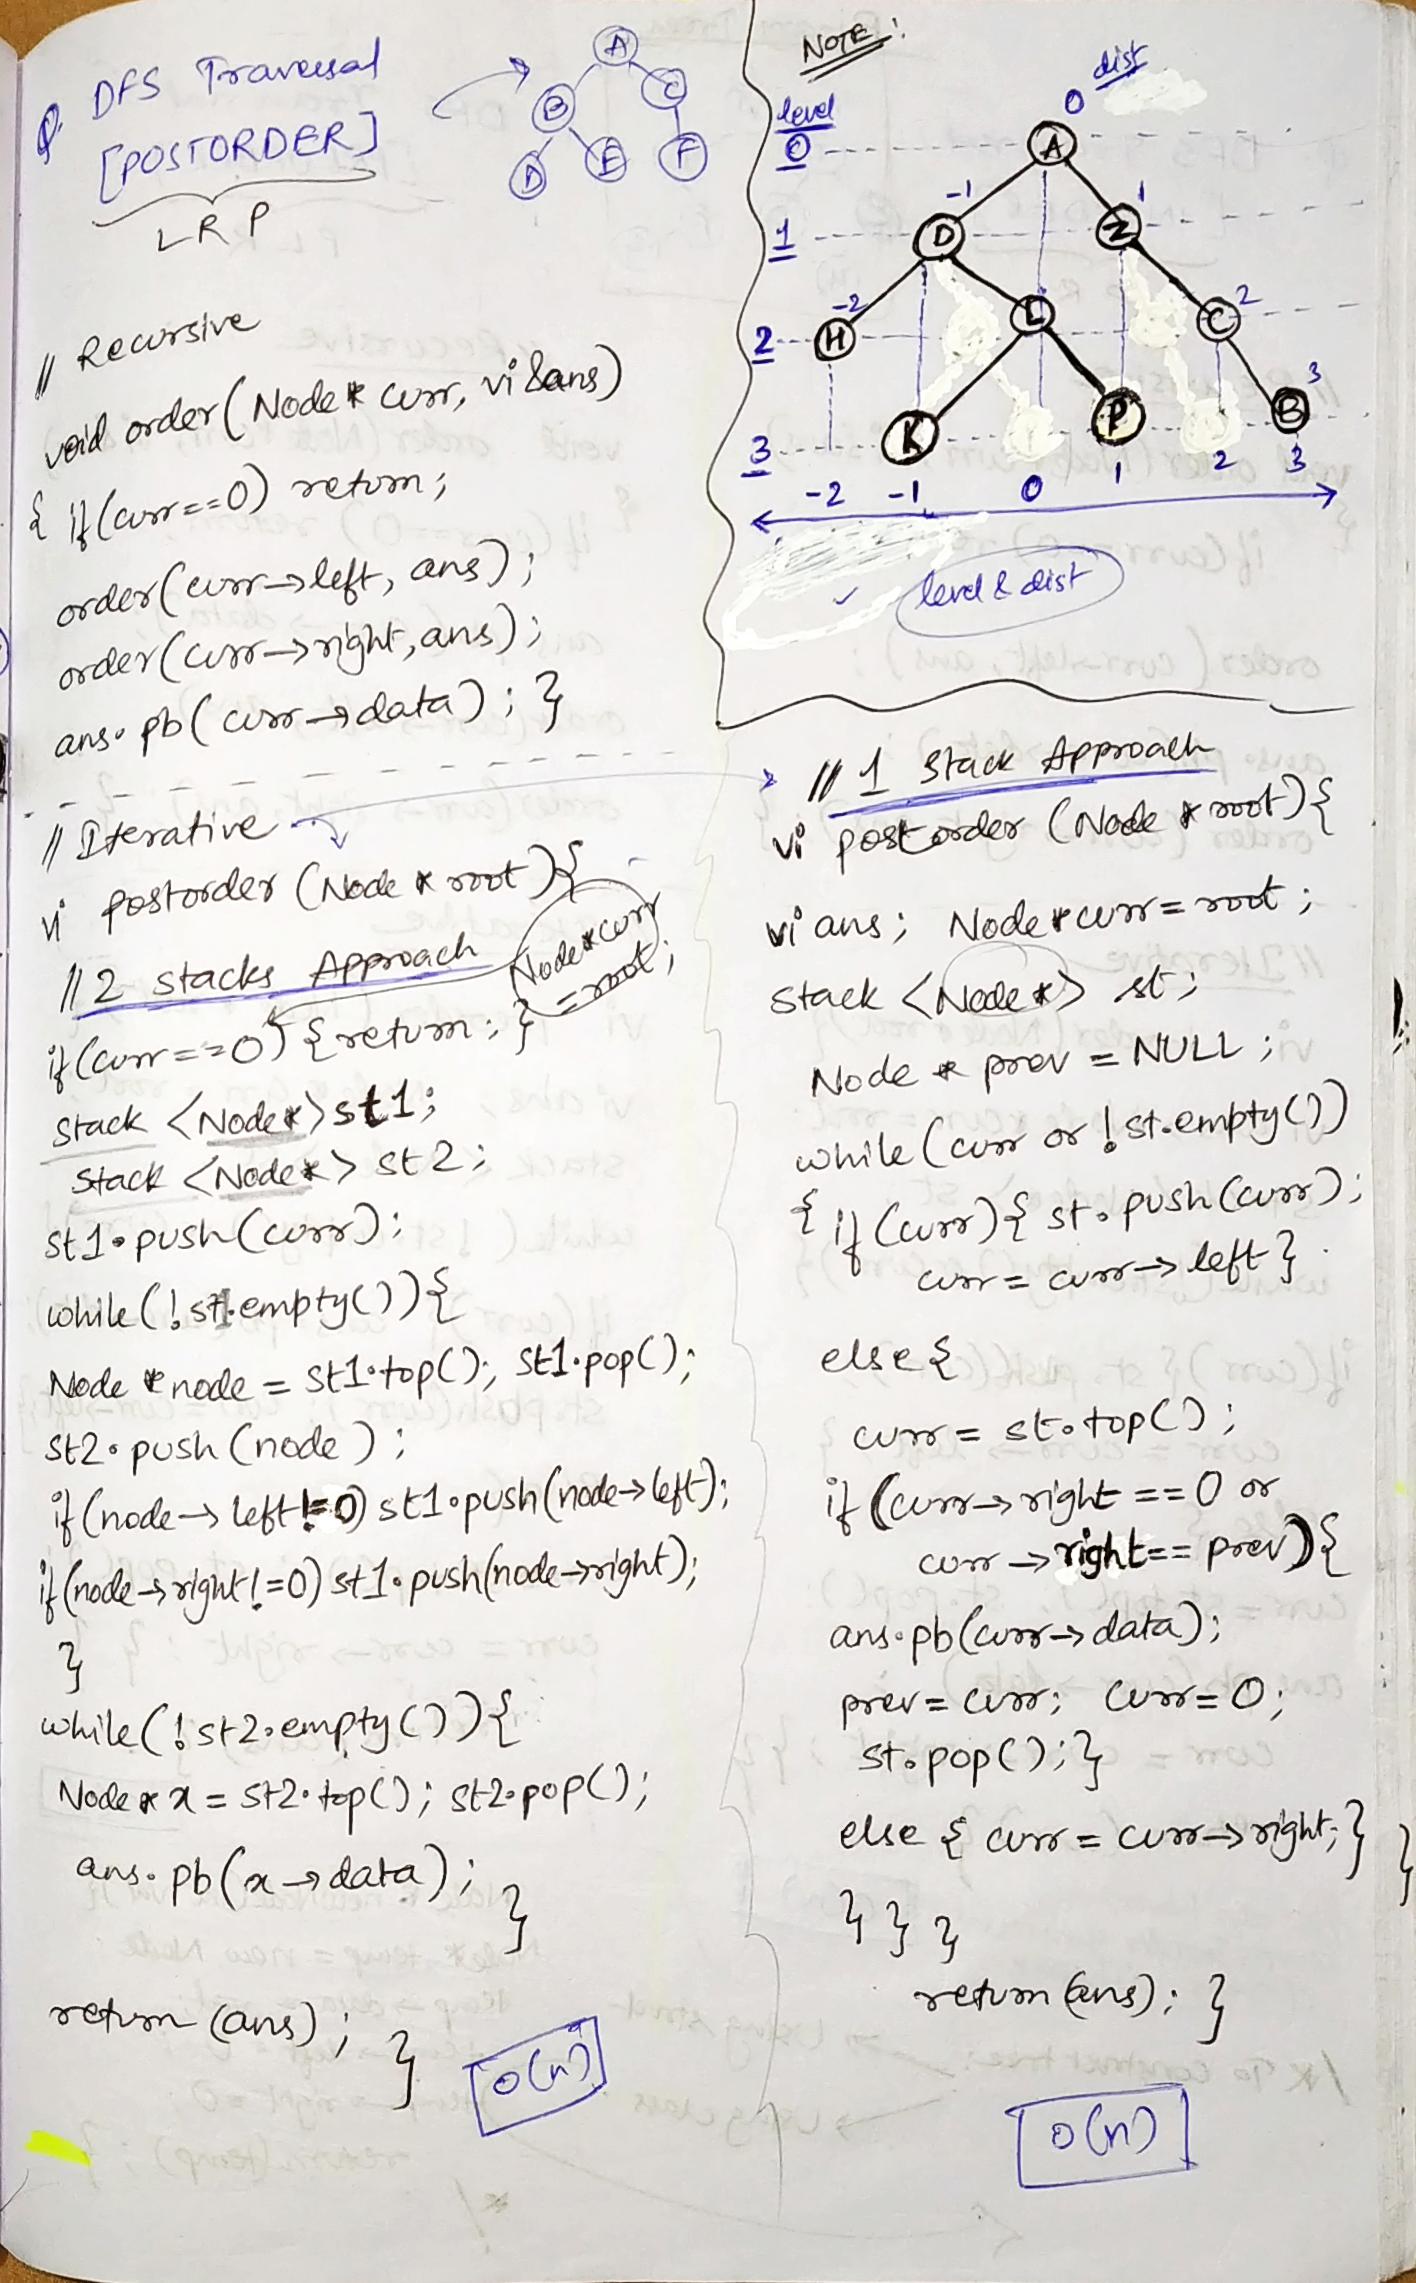 Q. DFS Traversal
[POSTORDER]
LRP
A
B C
D E F
// Recursive
void order(Node* curr, vi &ans)
{ if(curr==0) return;
order(curr→left, ans);
order(curr→right, ans);
ans.pb(curr→data); }
// Iterative
vi postorder (Node * root){
// 2 stacks Approach
Node*curr
=root;
if(curr==0) {return;}
stack <Node*> st1;
stack <Node*> st2;
st1.push(curr);
while(!st1.empty()){
Node *node = st1.top(); st1.pop();
st2.push(node);
if(node→left!=0) st1.push(node→left);
if(node→right!=0) st1.push(node→right);
}
while(!st2.empty()){
Node * x = st2.top(); st2.pop();
ans.pb(x→data);
}
return (ans); }
O(n)
NOTE:
dist
level
0 A 0
1 D -1 Z 1
2 H -2 L C 2
3 K P B 3
-2 -1 0 1 2 3
level & dist
// 1 Stack Approach
vi postorder (Node * root){
vi ans; Node*curr=root;
stack <Node*> st;
Node * prev = NULL;
while(curr or !st.empty())
{ if(curr){ st.push(curr);
curr = curr→left}
else{
curr = st.top();
if(curr→right == 0 or
curr→right == prev){
ans.pb(curr→data);
prev=curr; curr=0;
st.pop();}
else { curr = curr→right;} }
} } }
return(ans); }
O(n)